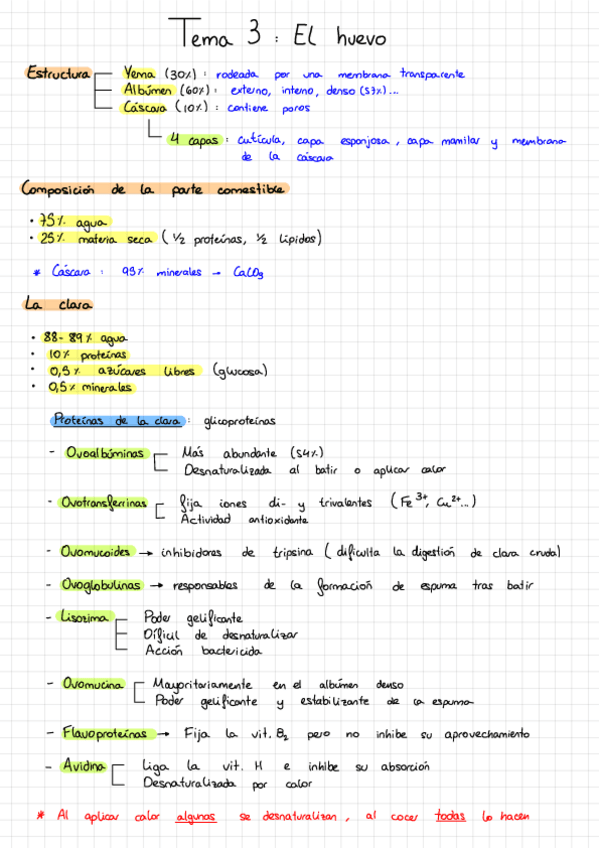 Tema 3 : El huevo
Estructura
Yema (30%) : rodeada por una membrana transparente
Albúmen (60%) : externo, interno, denso (57%)...
Cáscara (10%) : contiene poros
4 capas : cutícula, capa esponjosa, capa mamilar y membrana
de la cáscara
Composición de la parte comestible
• 75% agua
• 25% materia seca ( 1/2 proteínas, 1/2 lípidos)
* Cáscara : 95% minerales → CaCO3
La clara
• 88-89% agua
• 10% proteínas
• 0,5% azúcares libres (glucosa)
• 0,5% minerales
Proteínas de la clara : glicoproteínas
- Ovoalbúminas
Más abundante (54%)
Desnaturalizada al batir o aplicar calor
- Ovotransferrinas
fija iones di- y trivalentes ( Fe3+, Cu2+...)
Actividad antioxidante
- Ovomucoides → inhibidores de tripsina ( dificulta la digestión de clara cruda)
- Ovoglobulinas → responsables de la formación de espuma tras batir
- Lisozima
Poder gelificante
Difícil de desnaturalizar
Acción bactericida
- Ovomucina
Mayoritariamente en el albúmen denso
Poder gelificante y estabilizante de la espuma
- Flavoproteínas → Fija la vit. B2 pero no inhibe su aprovechamiento
- Avidina
Liga la vit. H e inhibe su absorción
Desnaturalizada por calor
* Al aplicar calor algunas se desnaturalizan, al cocer todas lo hacen